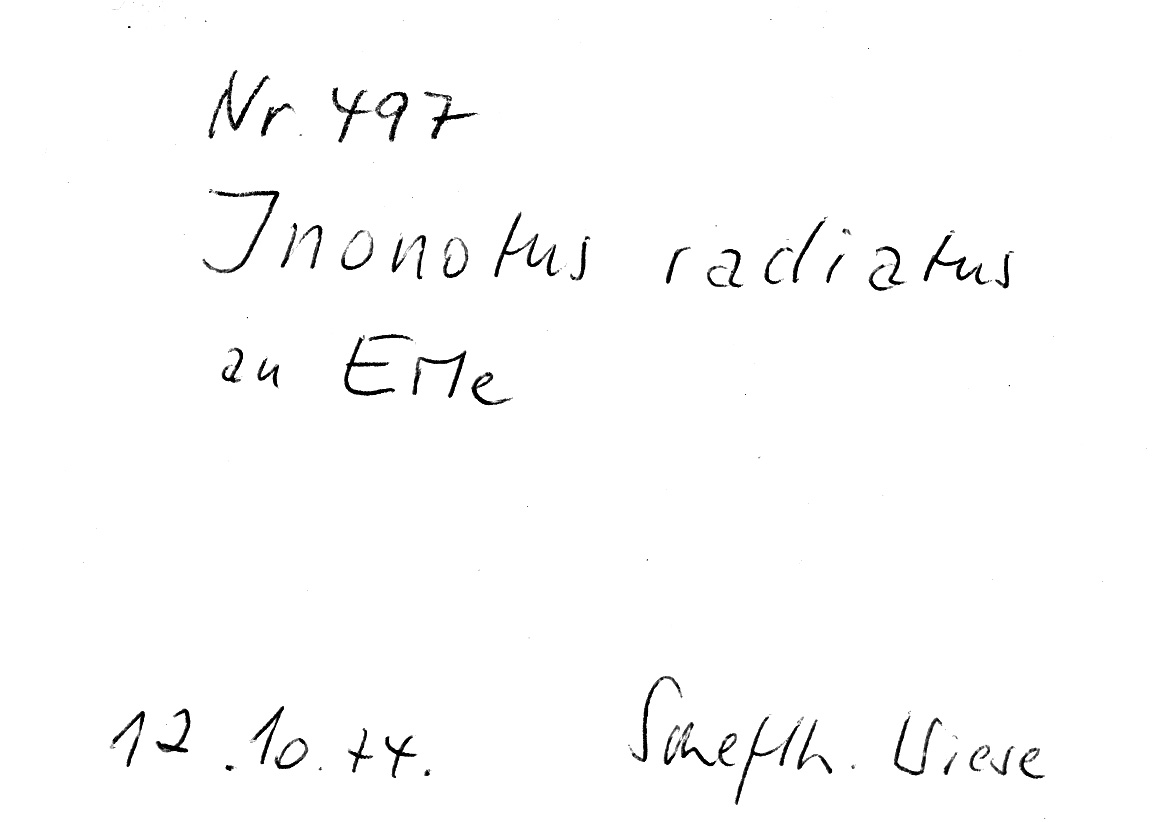 Nr. 497
Inonotus radiatus
an Erle
12.10.74. Scheftlh. Wiese